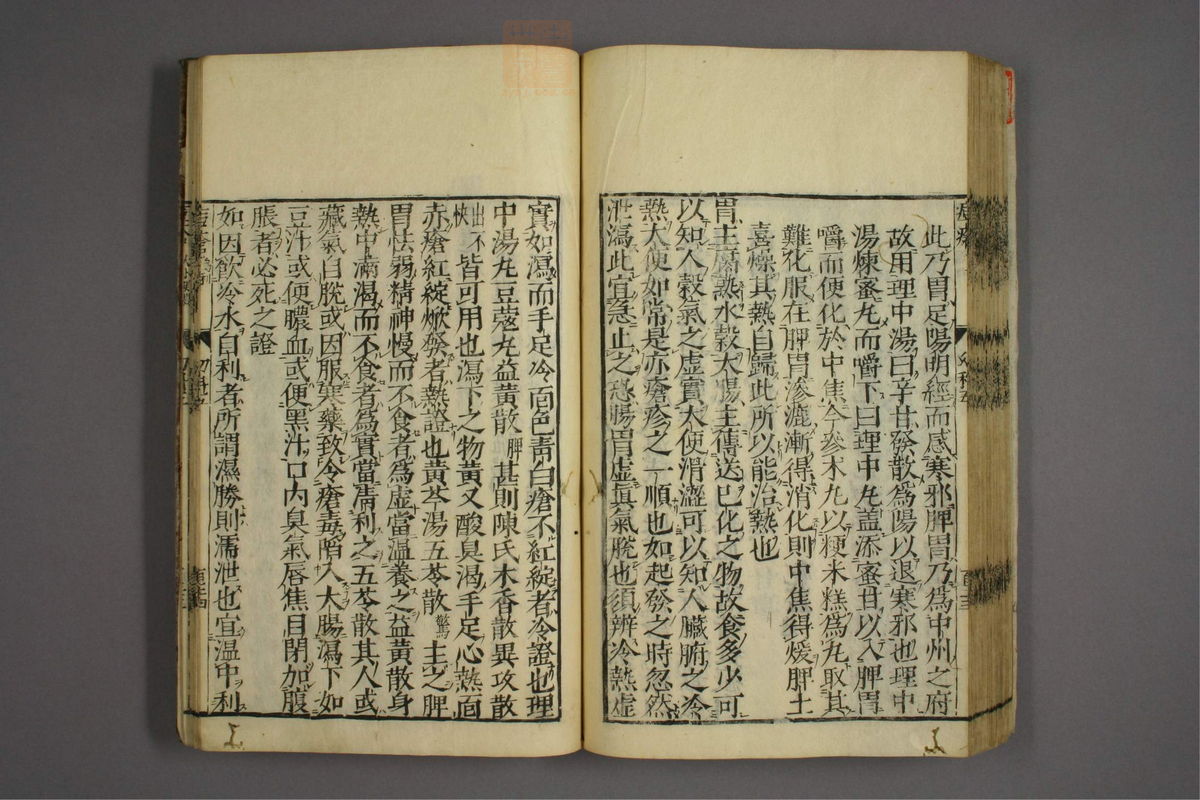 此乃胃足陽明經而感寒邪脾胃乃爲中州之府
故用理中湯曰辛甘發散爲陽以退寒邪也理中
湯煉蜜丸而嚼下曰理中丸蓋添蜜甘以入脾胃
嚼而便化於中焦今參朮丸以粳米糕爲丸取其
難化服在脾胃滲漉漸得消化則中焦得煖脾土
喜燥其熱自歸此所以能治熱也
胃主腐熟水穀大腸主傳送已化之物故食多少可
以知人穀氣之虛實大便滑澀可以知人臟腑之冷
熱大便如常是亦瘡疹之一順也如起發之時忽然
泄瀉此宜急止之恐腸胃虛眞氣脫也須辨冷熱虛
實如瀉而手足冷面色青白瘡不紅綻者冷證也理
中湯丸豆蔻丸益黃散脾甚則陳氏木香散異攻散
出不快皆可用也瀉下之物黃又酸臭渴手足心熱面
赤瘡紅綻焮發者熱證也黃芩湯五苓散驚主之脾
胃怯弱精神慢而不食者爲虛當溫養之益黃散身
熱中滿渴而不食者爲實當淸利之五苓散其人或
藏氣自脫或因服寒藥致令瘡毒陷入大腸瀉下如
豆汁或便膿血或便黑汁口內臭氣唇焦目閉加腹
脹者必死之證
如因飮冷水自利者所謂濕勝則濡泄也宜溫中利